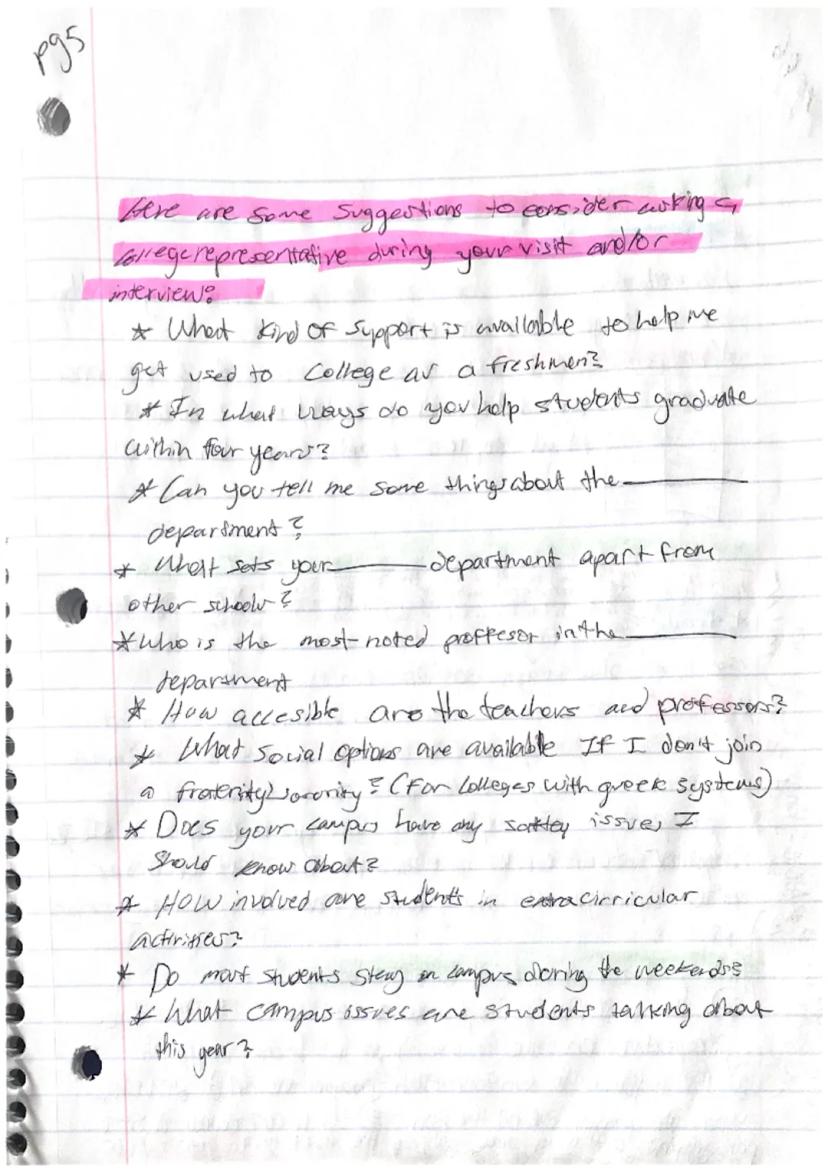 pg5
Here are some suggestions to consider asking a
college representative during your visit and/or
interview:
* What kind of support is available to help me
get used to College as a freshmen?
* In what ways do you help students graduate
within four years?
* Can you tell me some things about the ________
department?
* What sets your ________ department apart from
other schools?
* Who is the most-noted proffesor in the ________
department
* How accesible are the teachers and professors?
* What social options are available If I don't join
a fraternity/sorority? (For Colleges with greek systems)
* Does your campus have any saftey issues I
should know about?
* How involved are students in extracirricular
activities?
* Do most students stay on campus during the weekends?
* What campus issues are students talking about
this year?